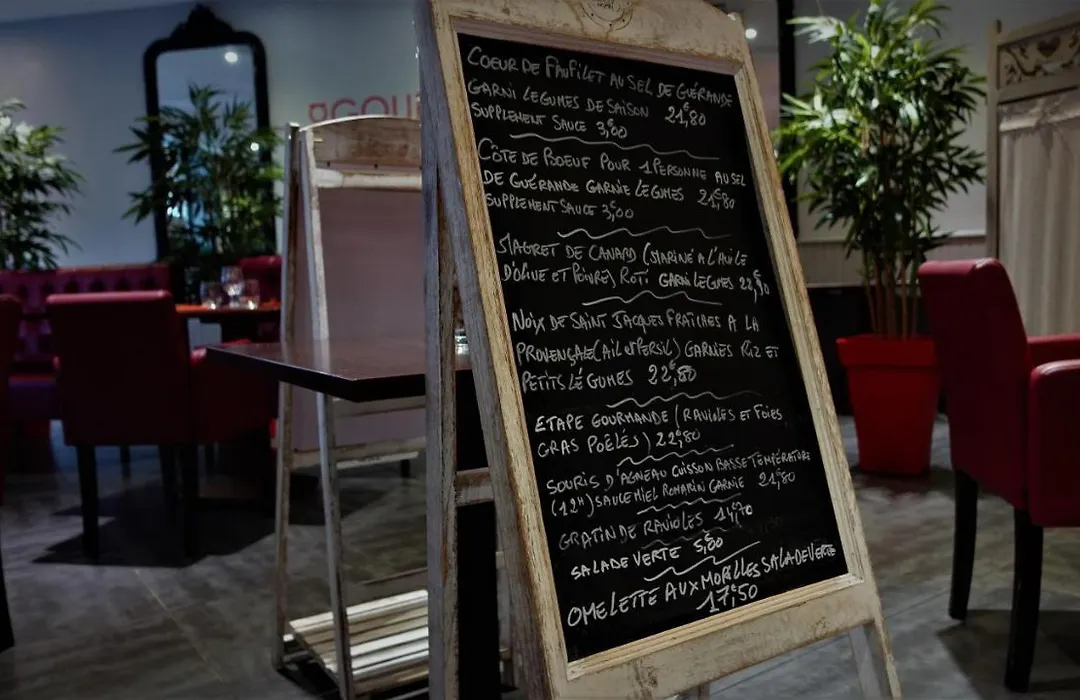 COEUR DE FAUFILET AU SEL DE GUÉRANDE
GARNI LEGUMES DE SAISON 21,80
SUPPLEMENT SAUCE 3,00
CÔTE DE BOEUF POUR 1 PERSONNE AU SEL
DE GUÉRANDE GARNIE LÉGUMES 21,80
SUPPLEMENT SAUCE 3,00
MAGRET DE CANARD (MARINÉ A L'HUILE
D'OLIVE ET POIVRE) ROTI GARNI LEGUMES 22,90
NOIX DE SAINT JACQUES FRAICHES A LA
PROVENÇALE (AIL et PERSIL) GARNIES RIZ ET
PETITS LÉGUMES 22,80
ETAPE GOURMANDE (RAVIOLES ET FOIES
GRAS POÊLÉS) 22,80
SOURIS D'AGNEAU CUISSON BASSE TEMPÉRATURE
(12H) SAUCE MIEL ROMARIN GARNIE 21,80
GRATIN DE RAVIOLES
SALADE VERTE 5,80
OMELETTE AUX MORILLES SALADE VERTE
17,50